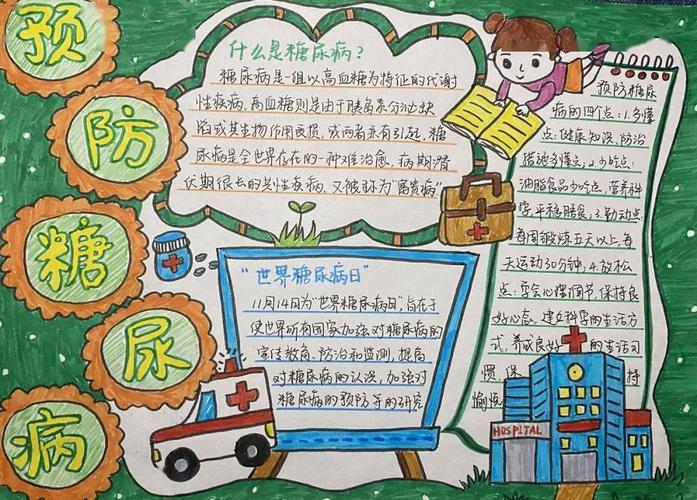 预
防
糖
尿
病
什么是糖尿病?
糖尿病是一组以高血糖为特征的代谢
性疾病,高血糖则是由于胰岛素分泌缺
陷或其生物作用受损,或两者兼有引起,糖
尿病是全世界存在的一种难治愈,病期潜
伏期很长的慢性疾病,又被称为"富贵病"
"世界糖尿病日"
11月14日为"世界糖尿病日",旨在于
使世界所有国家加强对糖尿病的
宣传教育,防治和监测,提高
对糖尿病的认识,加强对
糖尿病的预防等的研究
预防糖尿
病的四个点:1.多懂
点:健康知识,防治
措施多懂点,2.少吃点:
油脂食品少吃点,营养科
学,平稳膳食,3.勤动点
每周锻炼五天以上,每
天运动30分钟,4.放松
点:学会心理调节,保持良
好心态,建立科学的生活方
式,养成良好的生活习
惯,保持
愉悦
HOSPITAL